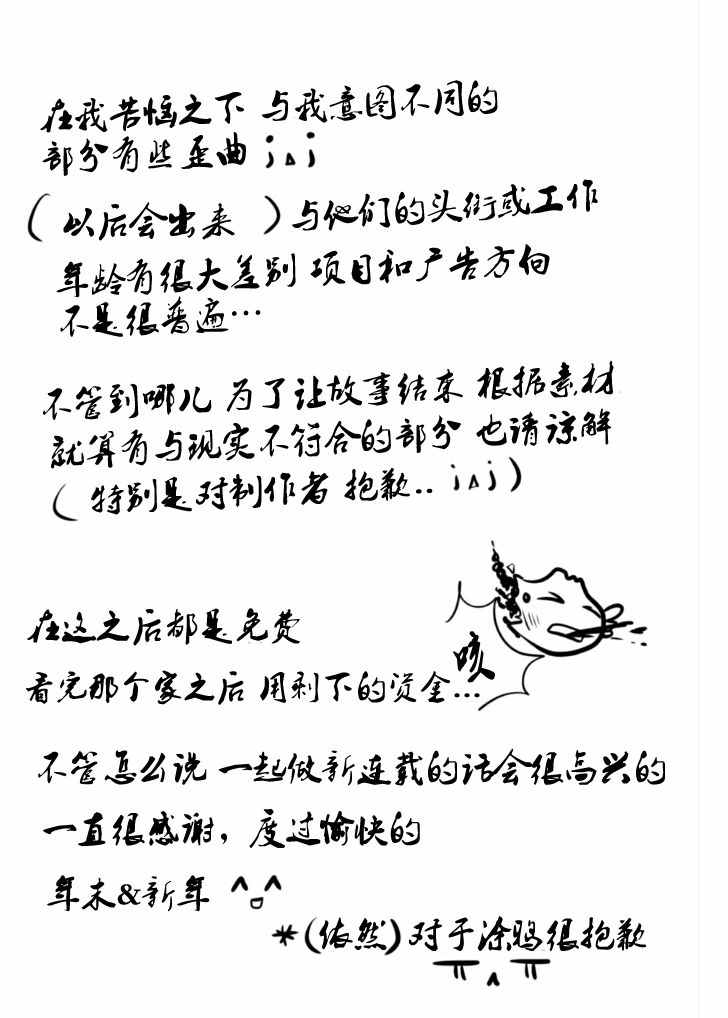 在我苦恼之下 与我意图不同的
部分有些歪曲 ;△;
(以后会出来 )与他们的头衔或工作
年龄有很大差别 项目和广告方向
不是很普遍…
不管到哪儿 为了让故事结束 根据素材
就算有与现实不符合的部分 也请谅解
(特别是对制作者 抱歉.. ;△;)
咳
在这之后都是免费
看完那个家之后 用剩下的资金...
不管怎么说 一起做新连载的话会很高兴的
一直很感谢，度过愉快的
年末&新年 ^ㅁ^
*(依然)对于涂鸦很抱歉
ㅠㅅㅠ